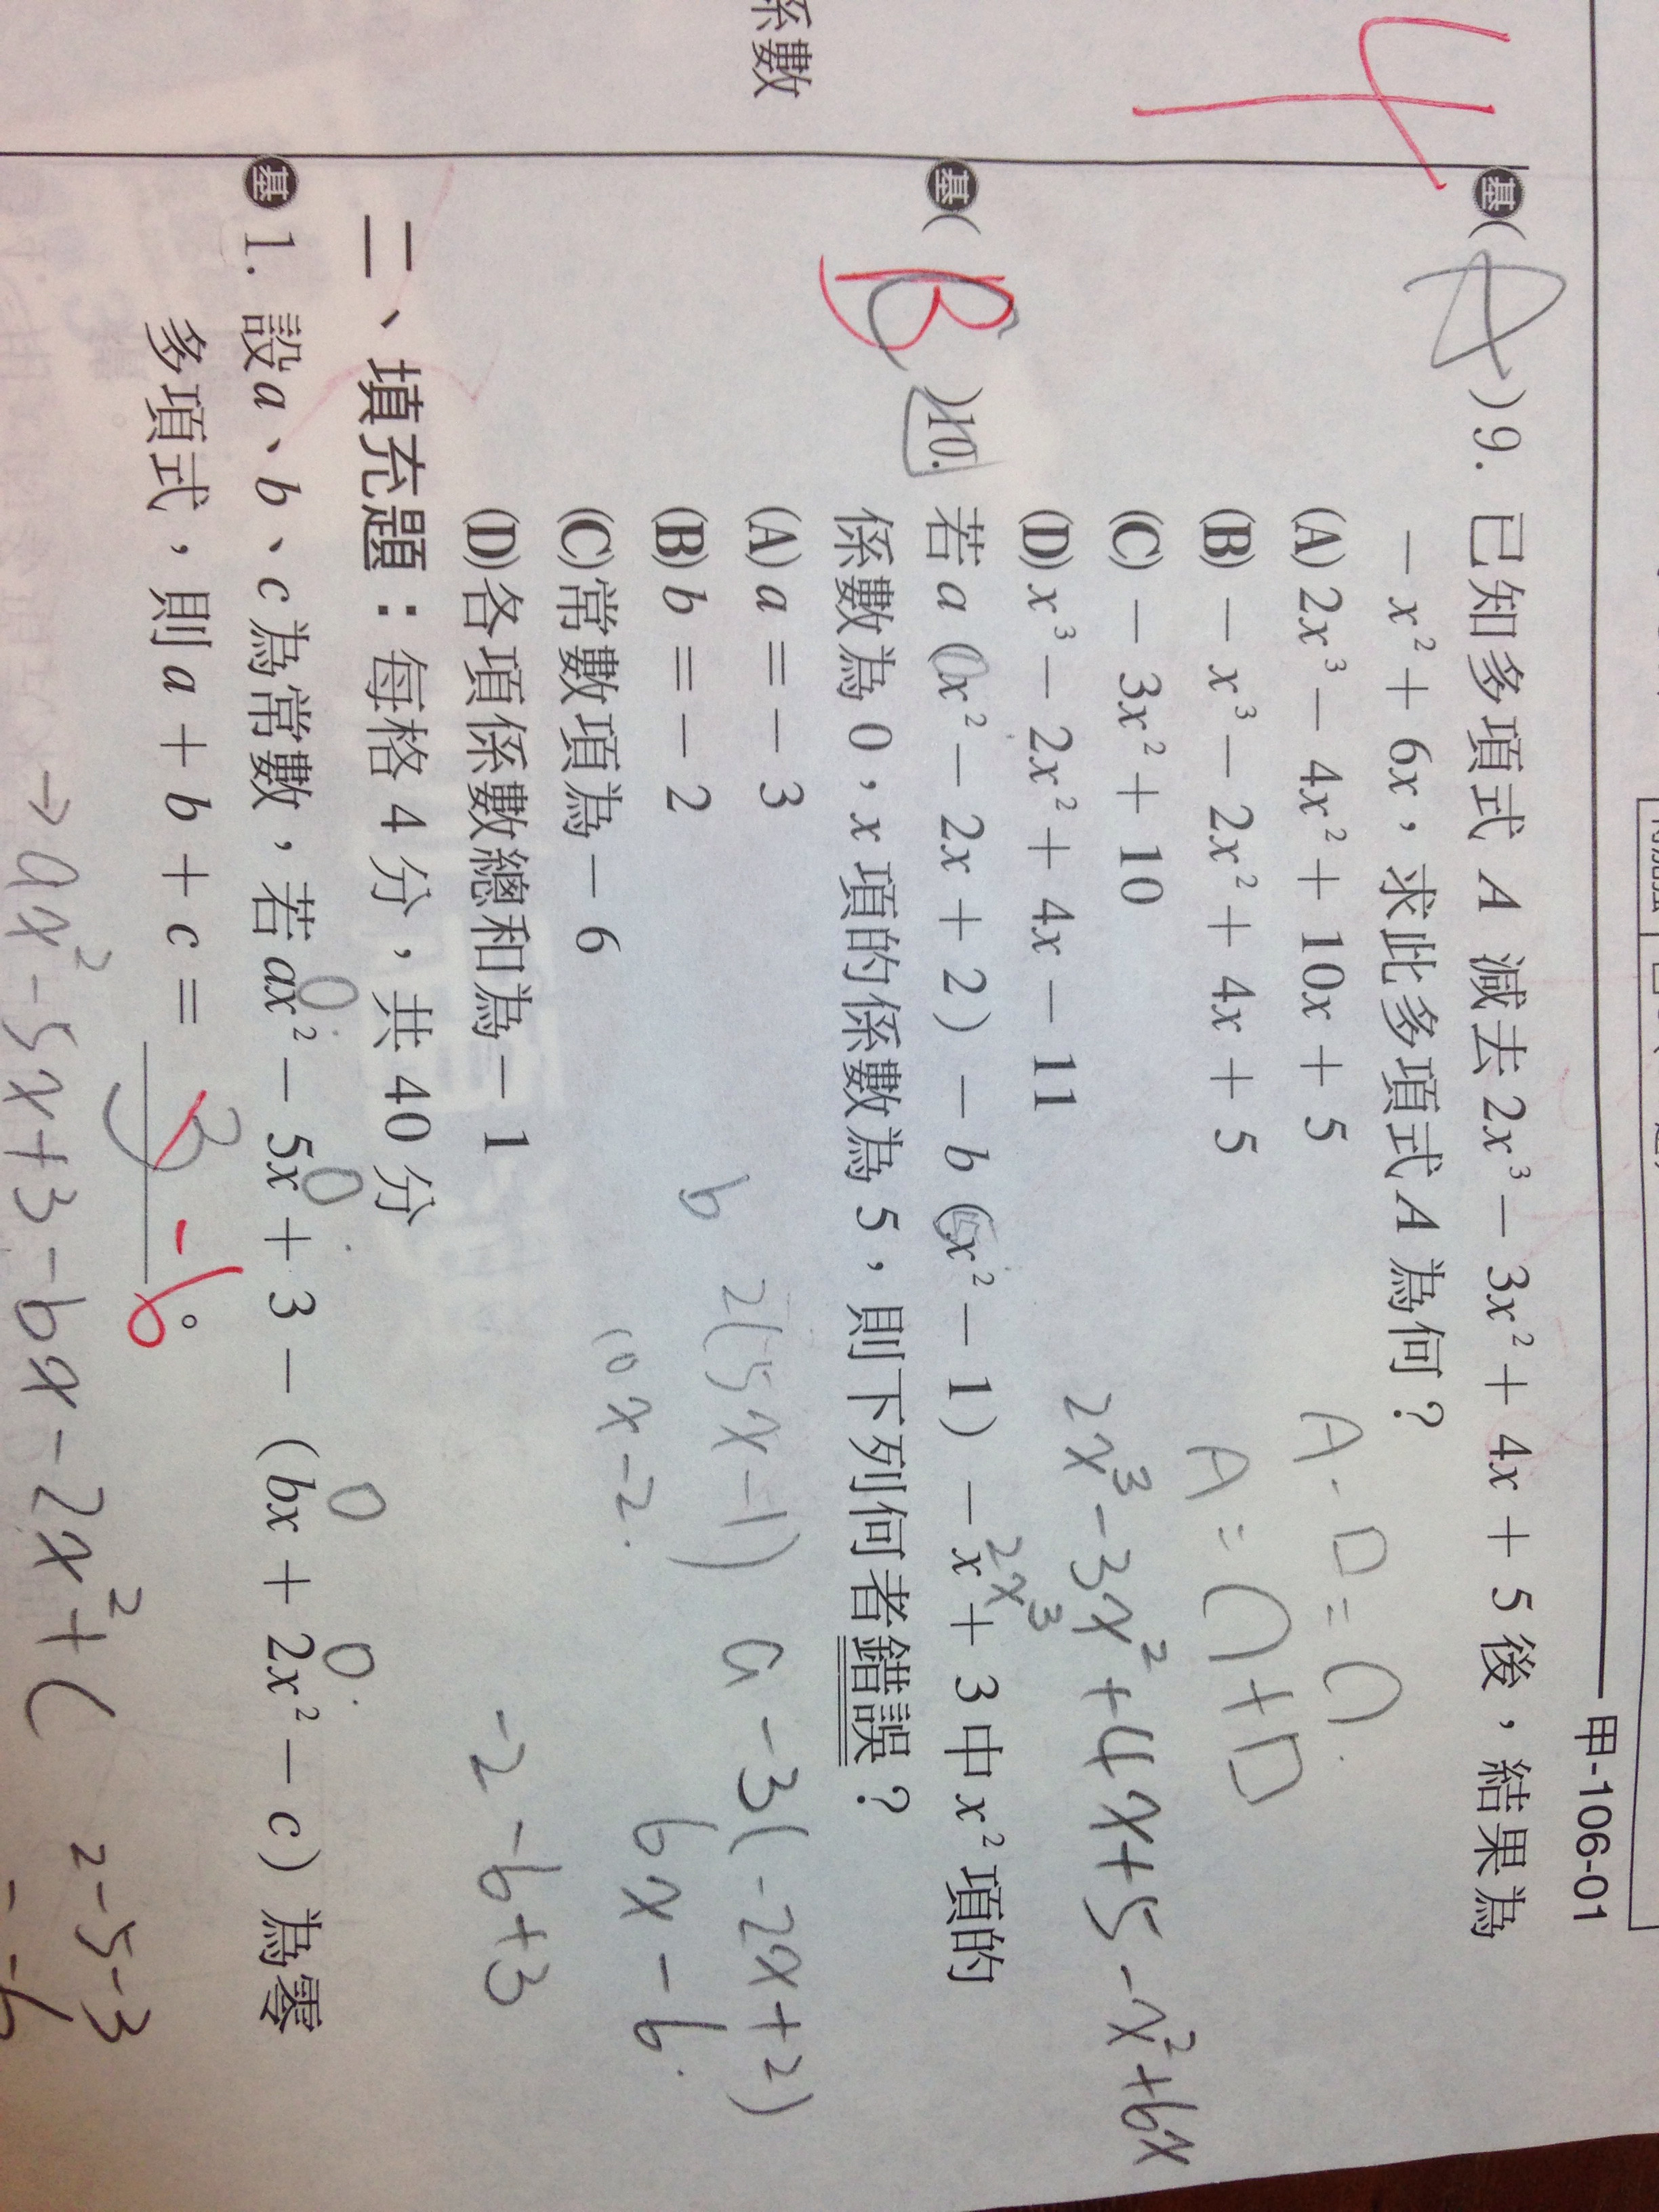 甲-106-01
4
係數
基(A)9. 已知多項式 A 減去 2x³－3x²＋4x＋5 後，結果為
－x²＋6x，求此多項式 A 為何？
(A) 2x³－4x²＋10x＋5
(B)－x³－2x²＋4x＋5
(C)－3x²＋10
(D) x³－2x²＋4x－11
A-□=()
A=()+□
2x³-3x²+4x+5-x²+6x
基(B)10. 若 a(x²－2x＋2)－b(x²－1)－x＋3 中 x² 項的
2x³
係數為 0，x 項的係數為 5，則下列何者錯誤？
(A) a＝－3
(B) b＝－2
(C)常數項為－6
(D)各項係數總和為－1
b 2(5x-1) a -3(-2x+2)
10x-2 6x-6
-2-6+3
二、填充題：每格 4 分，共 40 分
基1. 設 a、b、c 為常數，若 ax²－5x＋3－(bx＋2x²－c) 為零
多項式，則 a＋b＋c＝ 3 -6 。
→ax²-5x+3-bx-2x²+c
2-5-3
=-6